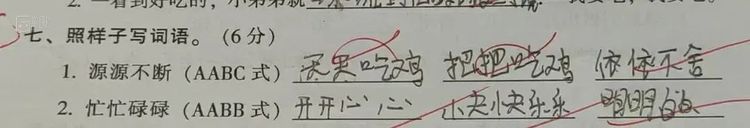 2. 一看到好吃的，小弟弟就
七、照样子写词语。（6分）
1. 源源不断（AABC 式） 天天吃鸡 把把吃鸡 依依不舍
2. 忙忙碌碌（AABB 式） 开开心心 快快乐乐 明明白白